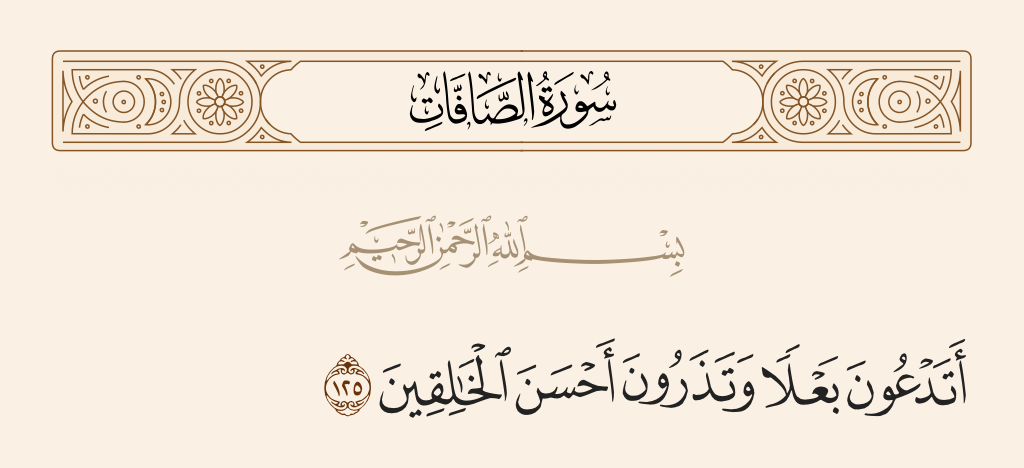 سُورَةُ الصَّافَّاتِ
بِسْمِ ٱللَّهِ ٱلرَّحْمَٰنِ ٱلرَّحِيمِ
أَتَدْعُونَ بَعْلًا وَتَذَرُونَ أَحْسَنَ ٱلْخَٰلِقِينَ ١٢٥